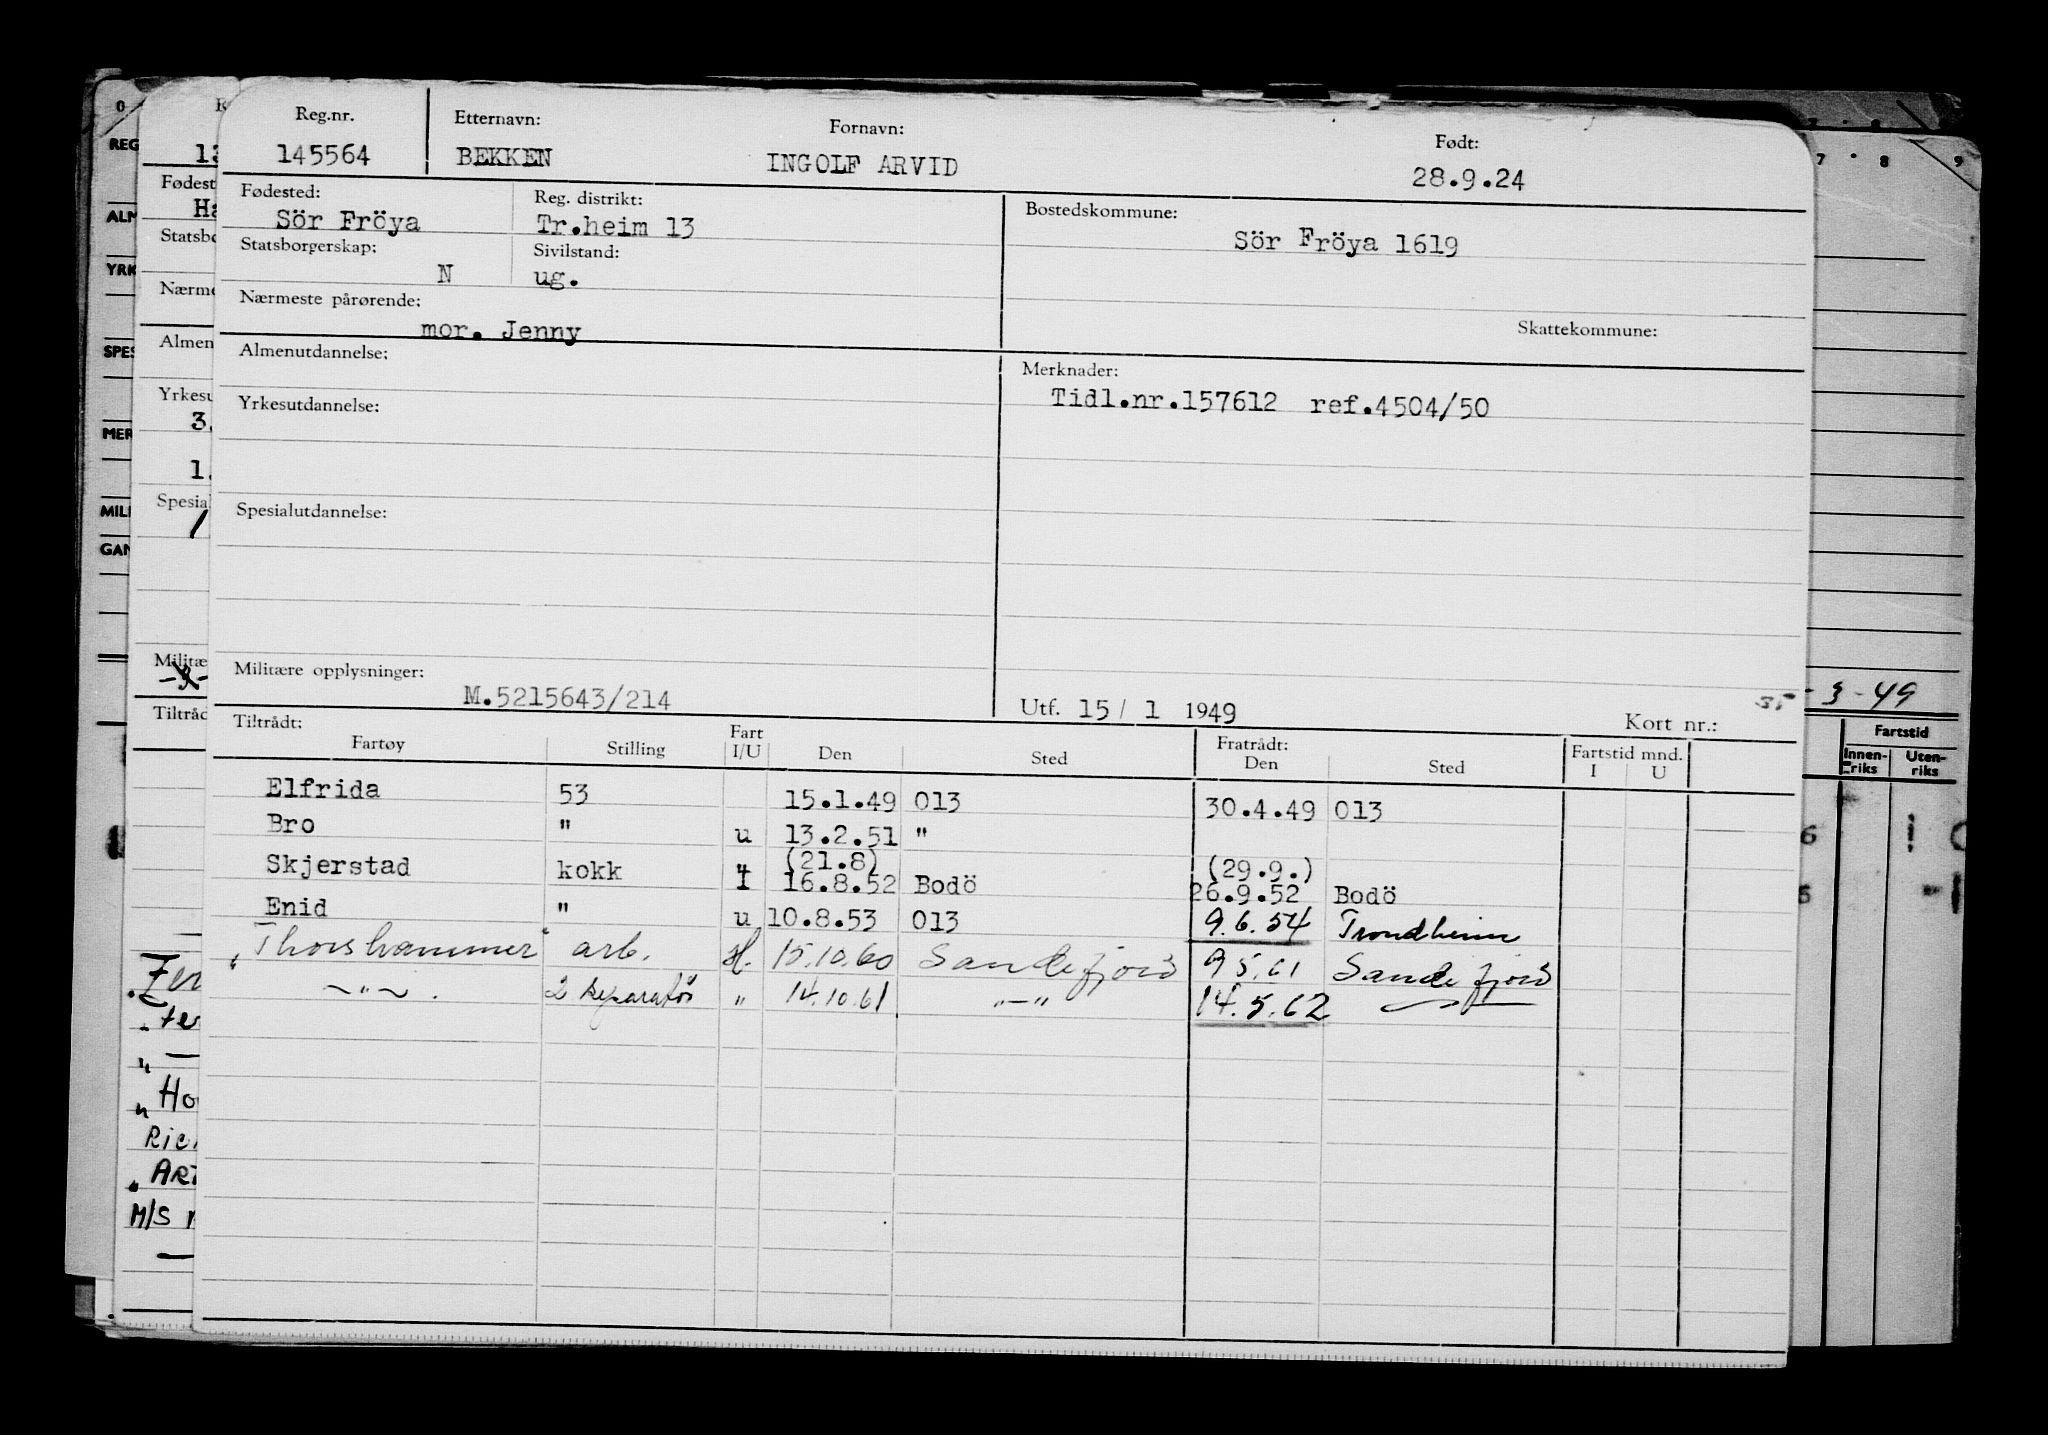 Reg.nr. Etternavn: Fornavn: Født:
145564 BEKKEN INGOLF ARVID 28.9.24
Fødested: Reg. distrikt: Bostedskommune:
Sör Fröya Tr.heim 13 Sör Fröya 1619
Statsborgerskap: Sivilstand:
N ug.
Nærmeste pårørende: Skattekommune:
mor. Jenny
Almenutdannelse: Merknader:
Tidl.nr.157612 ref.4504/50
Yrkesutdannelse:
Spesialutdannelse:
Militære opplysninger:
M.5215643/214 Utf. 15/ 1 1949 Kort nr.:
Tiltrådt: Fratrådt:
Fartøy Stilling Fart I/U Den Sted Den Sted Fartstid mnd. I U
Elfrida 53 15.1.49 013 30.4.49 013
Bro " u 13.2.51 "
(21.8) (29.9.)
Skjerstad kokk I 16.8.52 Bodö 26.9.52 Bodö
Enid " u 10.8.53 013 9.6.54 Trondheim
"Thorshammer" arb. H. 15.10.60 Sandefjord 9 5.61 Sandefjord
—"— . 2 reparatör " 14.10.61 —"— 14.5.62
3 - 49
Fartstid
Innen-riks Uten-riks
7 8 9